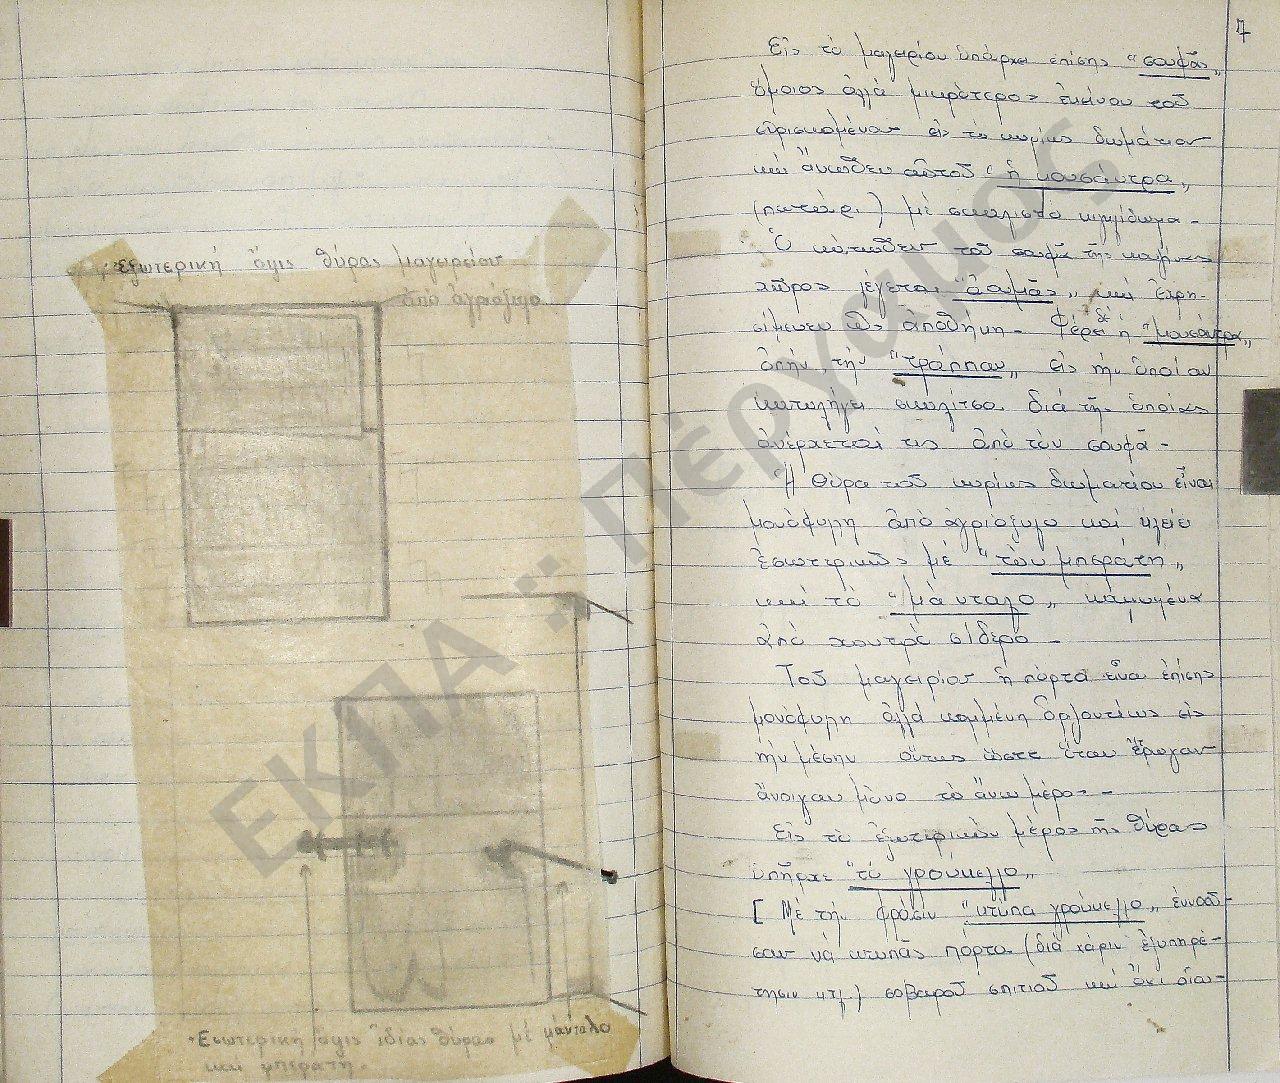 Ἐξωτερική ὄψις θύρας μαγειρείου
ἀπό ἀγριόξυλο
Ἐσωτερική ὄψις ἰδίας θύρας μέ μάνταλο
καί μπεράτη.
7
Εἰς τό μαγειρίον ὑπάρχει ἐπίσης "σουφᾶς„
ὅμοιος ἀλλά μικρότερος ἐκείνου τοῦ
εὑρισκομένου εἰς τό κυρίως δωμάτιον
καί ἄνωθεν αὐτοῦ "ἡ μουσάντρα„
(πατάρι) μέ σκαλιστό κιγκλίδωμα -
Ὁ κάτωθεν τοῦ σουφᾶ τῆς
χῶρος λέγεται καί ἐχρη-
σίμευεν ὡς ἀποθήκη - Φέρει δέ ἡ "μουσάντρα„
ὀπήν, τήν "τράππαν„ εἰς τήν ὁποίαν
καταλήγει σκαλίτσα διά τῆς ὁποίας
ἀνέρχεταί τις ἀπό τόν σουφᾶ -
Ἡ θύρα τοῦ κυρίως δωματίου εἶναι
μονόφυλλη ἀπό ἀγριόξυλο καί κλείει
ἐσωτερικῶς μέ "τόν μπεράτη„
καί τό "μάνταλο„ καμωμένα
ἀπό χοντρό σίδερο -
Τοῦ μαγειρίου ἡ πόρτα εἶναι ἐπίσης
μονόφυλλη ἀλλά κομμένη ὁριζοντίως εἰς
τήν μέσην οὕτως ὥστε ὅταν ἔτρωγαν
ἄνοιγαν μόνο τό ἄνω μέρος -
Εἰς τό ἐξωτερικόν μέρος τῆς θύρας
ὑπῆρχε "τό γρούκελλο„
[ Μέ τήν φράσιν "κτύπα γρούκελλο„ ἐννοοῦ-
σαν νά κτυπᾶς πόρτα (διά χάριν ἐξυπηρέ-
τησιν κτλ.) σοβαροῦ σπιτιοῦ καί ὄχι οἱου-
ΕΚΠΑ :: Πέργαμος